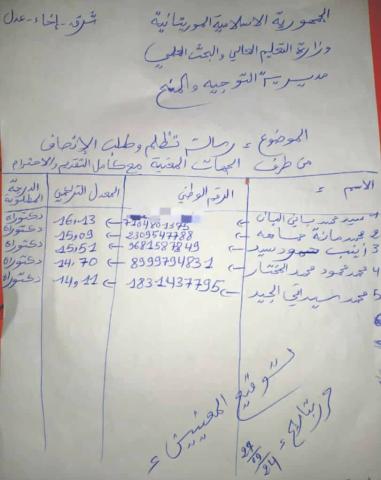 الجمهورية الاسلامية الموريتانية
شرف - إخاء - عدل
وزارة التعليم العالي والبحث العلمي
مديرية التوجيه والمنح
الموضوع : رسالة تظلم وطلب الإنصاف
من طرف الجهات المعنية مع كامل التقدير والاحترام
الاسم : الرقم الوطني المعدل التراكمي الدرجة المطلوبة
1- سيد محمد باتي 16.13 دكتوراه
2 محمد 2309547788 15.09 دكتوراه
3 زينب سيد 9681587849 15.51 دكتوراه
4 محمد محمود محمد المختار 8999794831 14.70 دكتوراه
5 محمد سيداتي الجيد 1831437795 14.11 دكتوراه
توقيع المعنيين :
حرر بتاريخ :